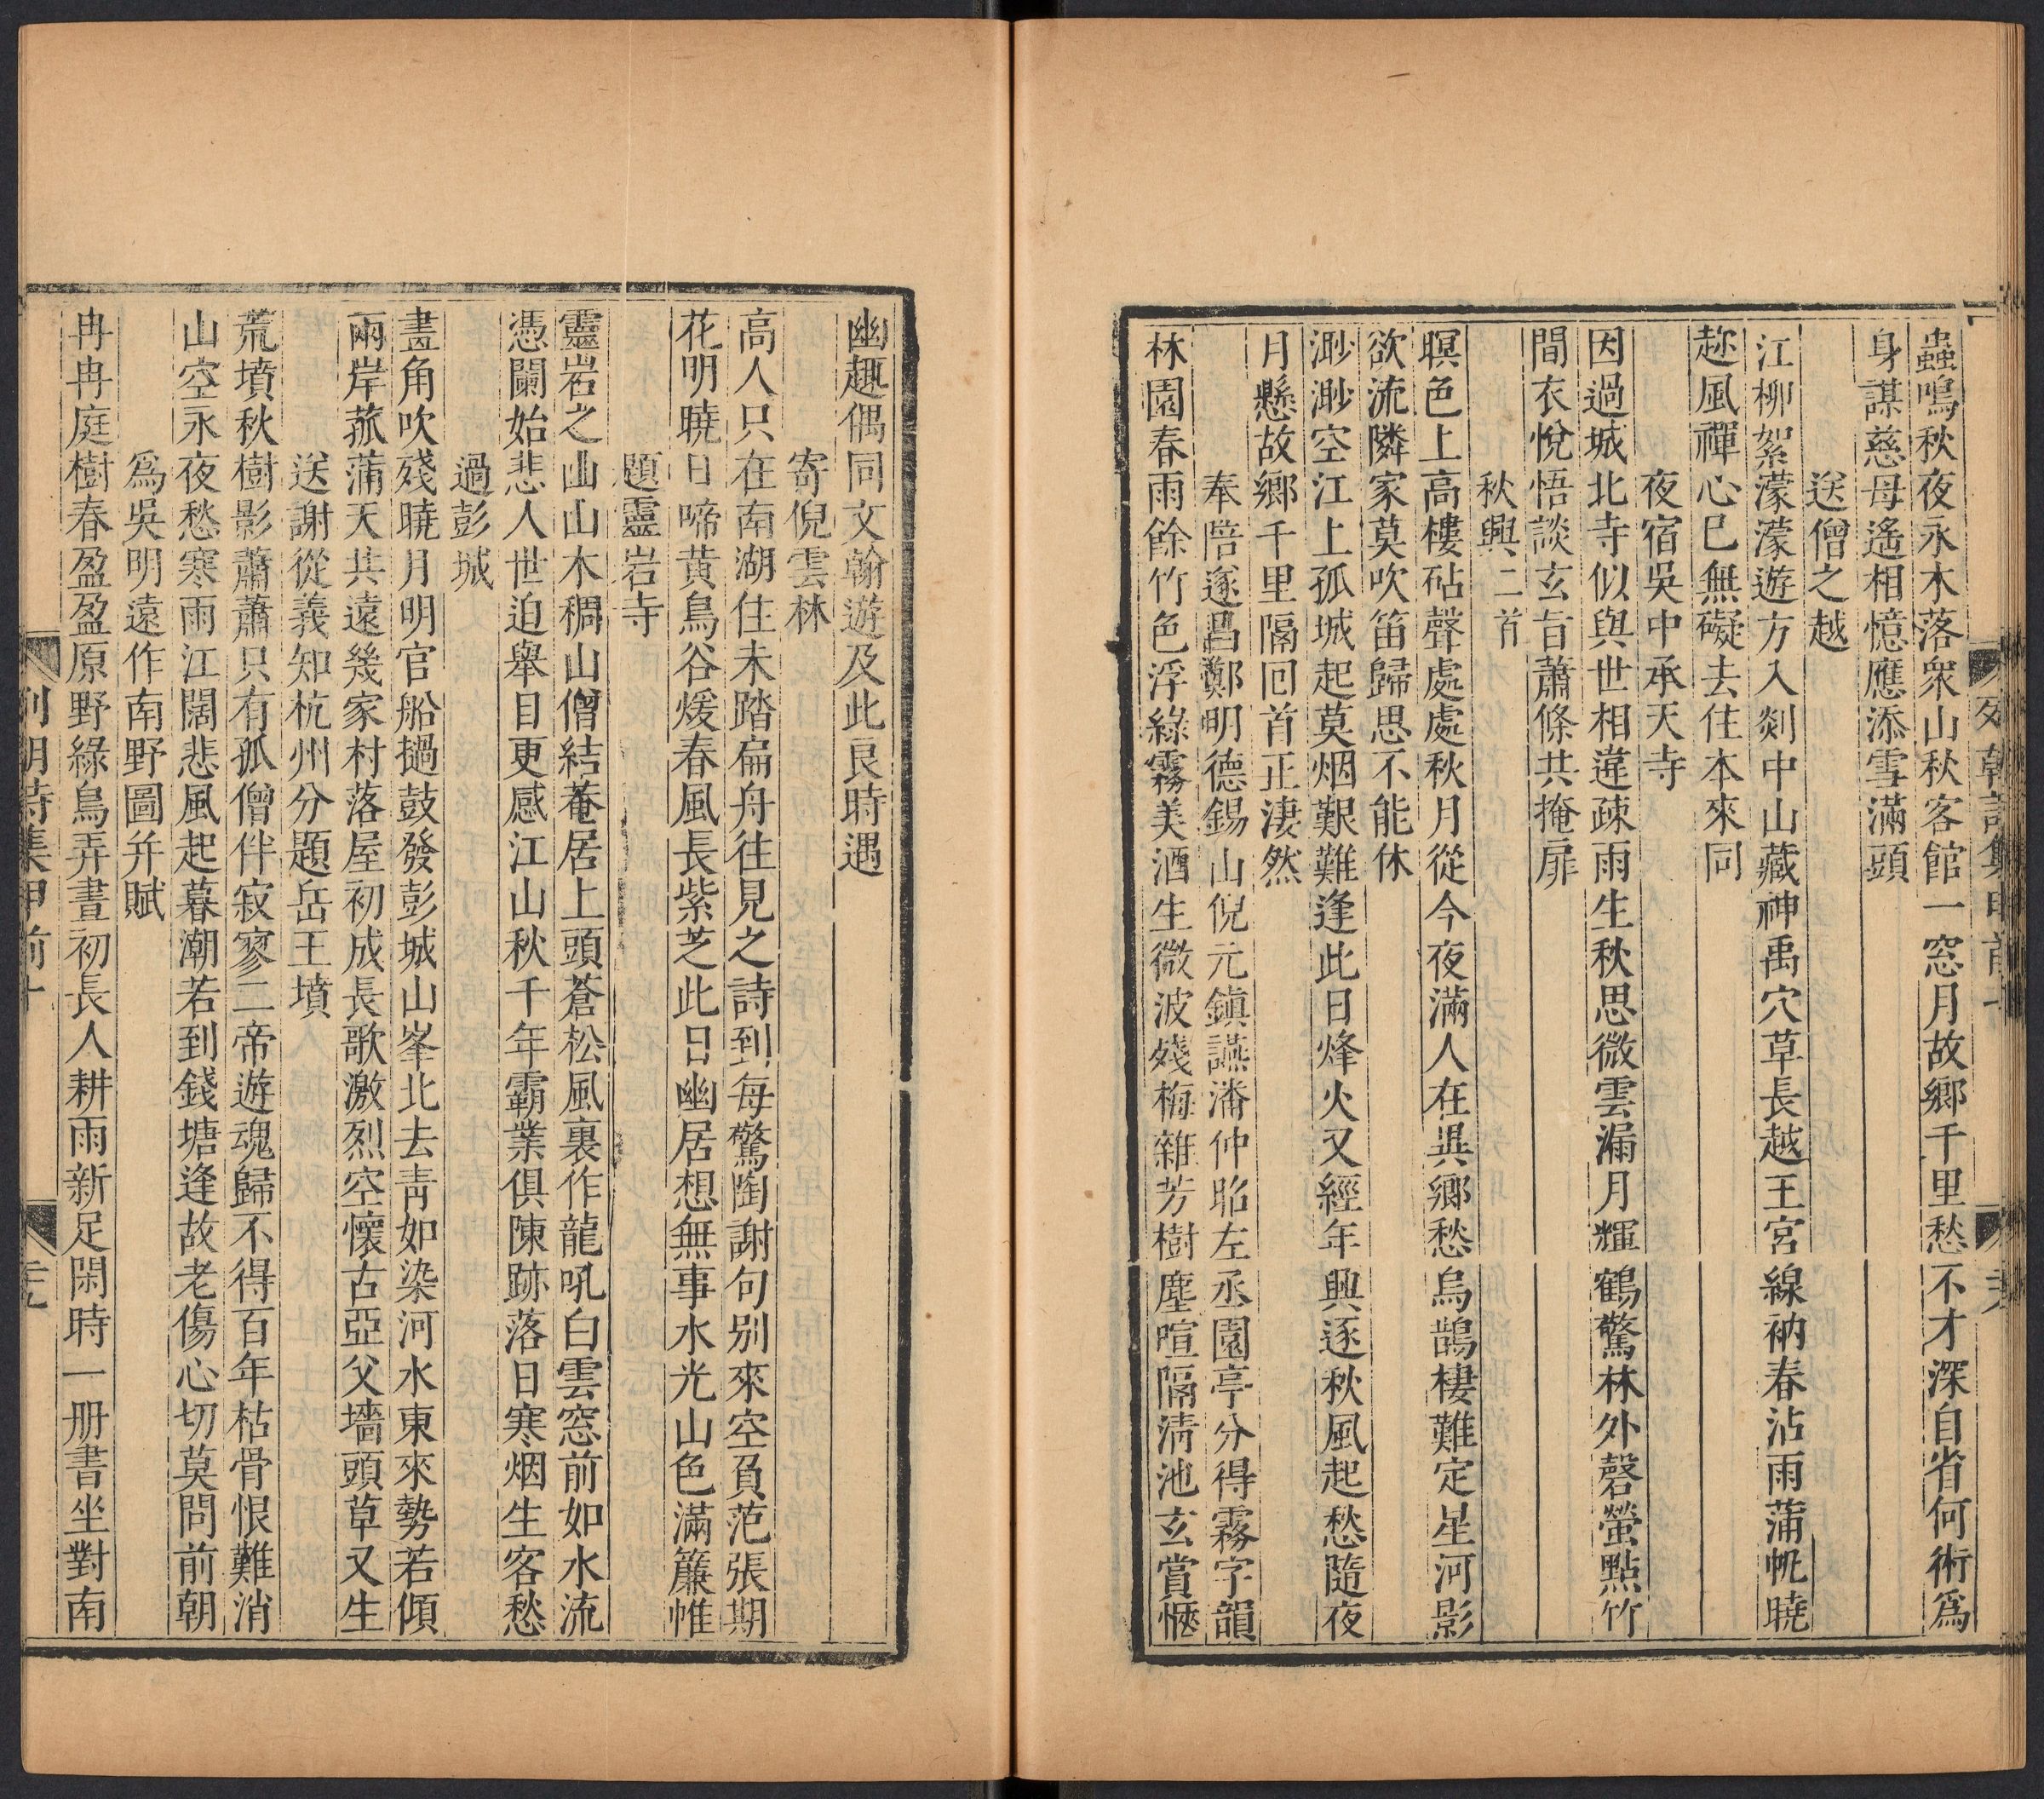 蟲鳴秋夜永木落衆山秋客館一窓月故鄉千里愁不才深自省何術爲
身謀慈母遙相憶應添雪滿頭
送僧之越
江柳絮濛濛遊方入剡中山藏神禹穴草長越王宮線衲春沾雨蒲帆曉
趂風禪心已無礙去住本來同
夜宿吳中承天寺
因過城北寺似與世相違疎雨生秋思微雲漏月輝鶴驚林外磬螢點竹
間衣悅悟談玄旨蕭條共掩扉
秋興二首
暝色上高樓砧聲處處秋月從今夜滿人在異鄉愁烏鵲棲難定星河影
欲流隣家莫吹笛歸思不能休
渺渺空江上孤城起莫烟艱難逢此日烽火又經年興逐秋風起愁隨夜
月懸故鄉千里隔回首正淒然
奉陪遂昌鄭明德錫山倪元鎮讌潘仲昭左丞園亭分得霧字韻
林園春雨餘竹色浮綠霧美酒生微波殘梅雜芳樹塵喧隔淸池玄賞愜
幽趣偶同文翰遊及此良時遇
寄倪雲林
高人只在南湖住未踏扁舟往見之詩到每驚陶謝句別來空負范張期
花明曉日啼黃鳥谷煖春風長紫芝此日幽居想無事水光山色滿簾帷
題靈岩寺
靈岩之山山木稠山僧結菴居上頭蒼松風裏作龍吼白雲窓前如水流
憑闌始悲人世迫舉目更感江山秋千年霸業俱陳跡落日寒烟生客愁
過彭城
畫角吹殘曉月明官船撾鼓發彭城山峯北去靑如染河水東來勢若傾
兩岸菰蒲天共遠幾家村落屋初成長歌激烈空懷古亞父墻頭草又生
送謝從義知杭州分題岳王墳
荒墳秋樹影蕭蕭只有孤僧伴寂寥二帝遊魂歸不得百年枯骨恨難消
山空永夜愁寒雨江闊悲風起暮潮若到錢塘逢故老傷心切莫問前朝
爲吳明遠作南野圖并賦
冉冉庭樹春盈盈原野綠鳥弄晝初長人耕雨新足閑時一册書坐對南
列朝詩集甲前十